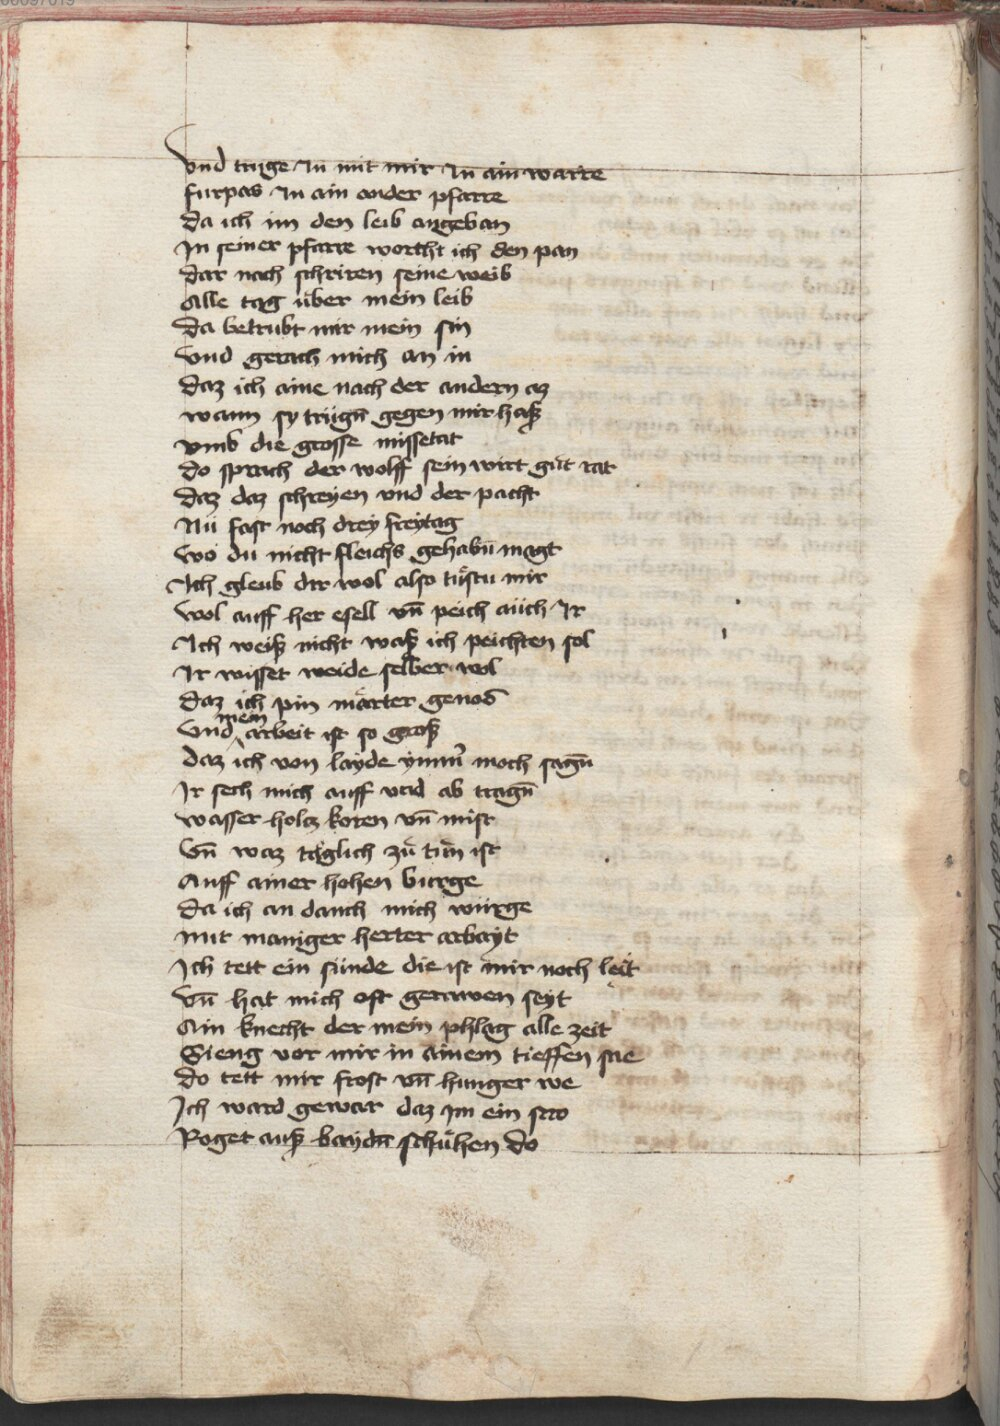 Und truge In mit mir In ain warte
furpas In ain ander pfarre
da ich im den leib angeban
In seiner pfarre worcht ich den pan
dar nach schriren seine weib
Alle tag über mein leib
da betrubt mir mein sin
Und gerach mich an in
daz ich aine nach der andern az
wann sy trügn̄ gegen mir haß
vmb die grosse missetat
do sprach der wolff sein wirt gůt rat
daz daz schreyen vnd der pacht
Nü fast noch drey freytag
wo du nicht fleichs gehabn̄ magt
Ich gleub dir wol also tüstu mir
wol auff her esell vn̄ peich aüch Ir
Ich weiß nicht waß ich peichten sol
Ir wisset weide selber wol
daz ich pin märter genos
Und mein arbeit ist so groß
daz ich von layde ymm̄ moch sagn̄
Ir sech mich auff vnd ab tragn̄
wasser holcz koren vn̄ mist
Vn̄ waz täglich zů tůn ist
Auff ainer hohen burge
da ich an danch mich würge
mit maniger herter arbayt
Ich tett ein sünde die ist mir noch leit
vn̄ hat mich oft gerawen seyt
Ain knecht der mein phlag alle zeit
Gieng vor mir in ainem tieffen sne
do tett mir frost vn̄ hunger we
Ich ward gewar daz im ein stro
Roget auß baydn̄ schühen do